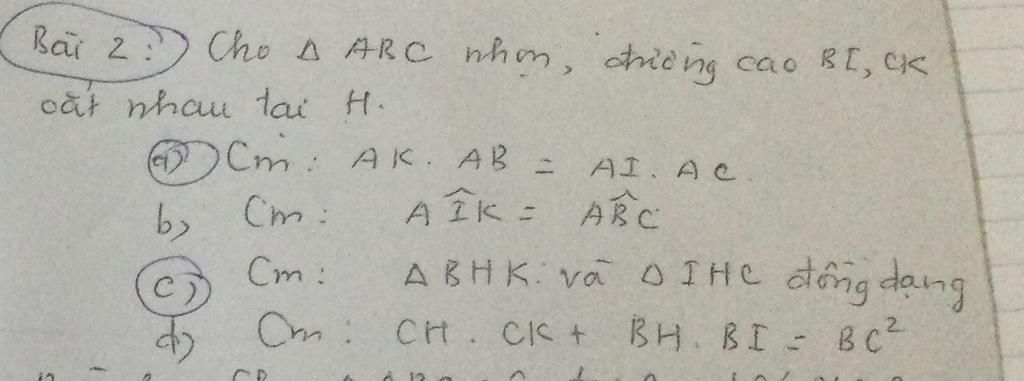 Bài 2: Cho Δ ABC nhọn, đường cao BI, CK
cắt nhau tại H.
a) Cm: AK. AB = AI. AC.
b) Cm: AÎK = AB̂C
c) Cm: Δ BHK và Δ IHC đồng dạng
d) Cm: CH. CK + BH. BI = BC²